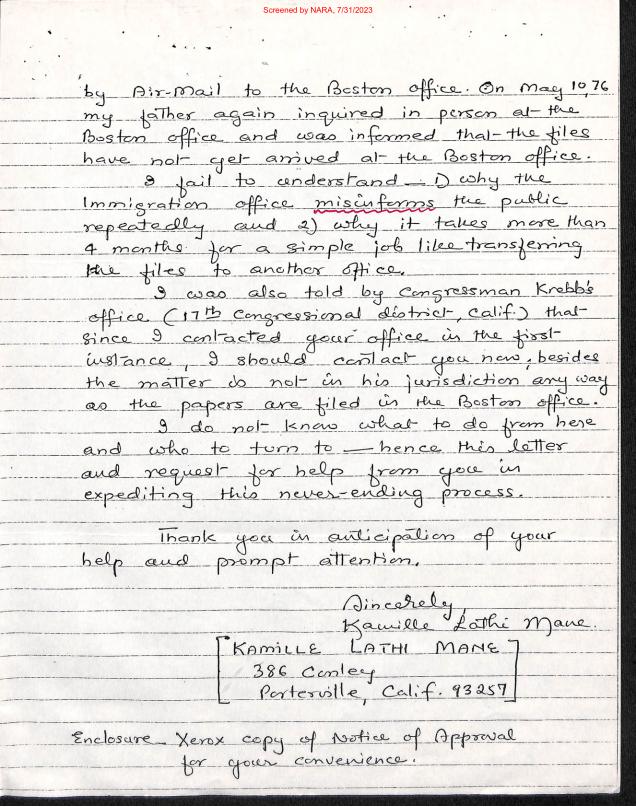 Screened by NARA, 7/31/2023
by Air-Mail to the Boston office. On May 10, 76
my father again inquired in person at the
Boston office and was informed that the files
have not yet arrived at the Boston office.
I fail to understand — 1) why the
Immigration office misinforms the public
repeatedly and 2) why it takes more than
4 months for a simple job like transferring
the files to another office.
I was also told by Congressman Krebb's
office (17th Congressional district, Calif.) that
since I contacted your office in the first
instance, I should contact you now; besides
the matter is not in his jurisdiction any way
as the papers are filed in the Boston office.
I do not know what to do from here
and who to turn to — hence this letter
and request for help from you in
expediting this never-ending process.
Thank you in anticipation of your
help and prompt attention.
Sincerely,
Kamille Lathi Mane.
[KAMILLE LATHI MANE
386 Conley
Porterville, Calif. 93257]
Enclosure - Xerox copy of Notice of Approval
for your convenience.